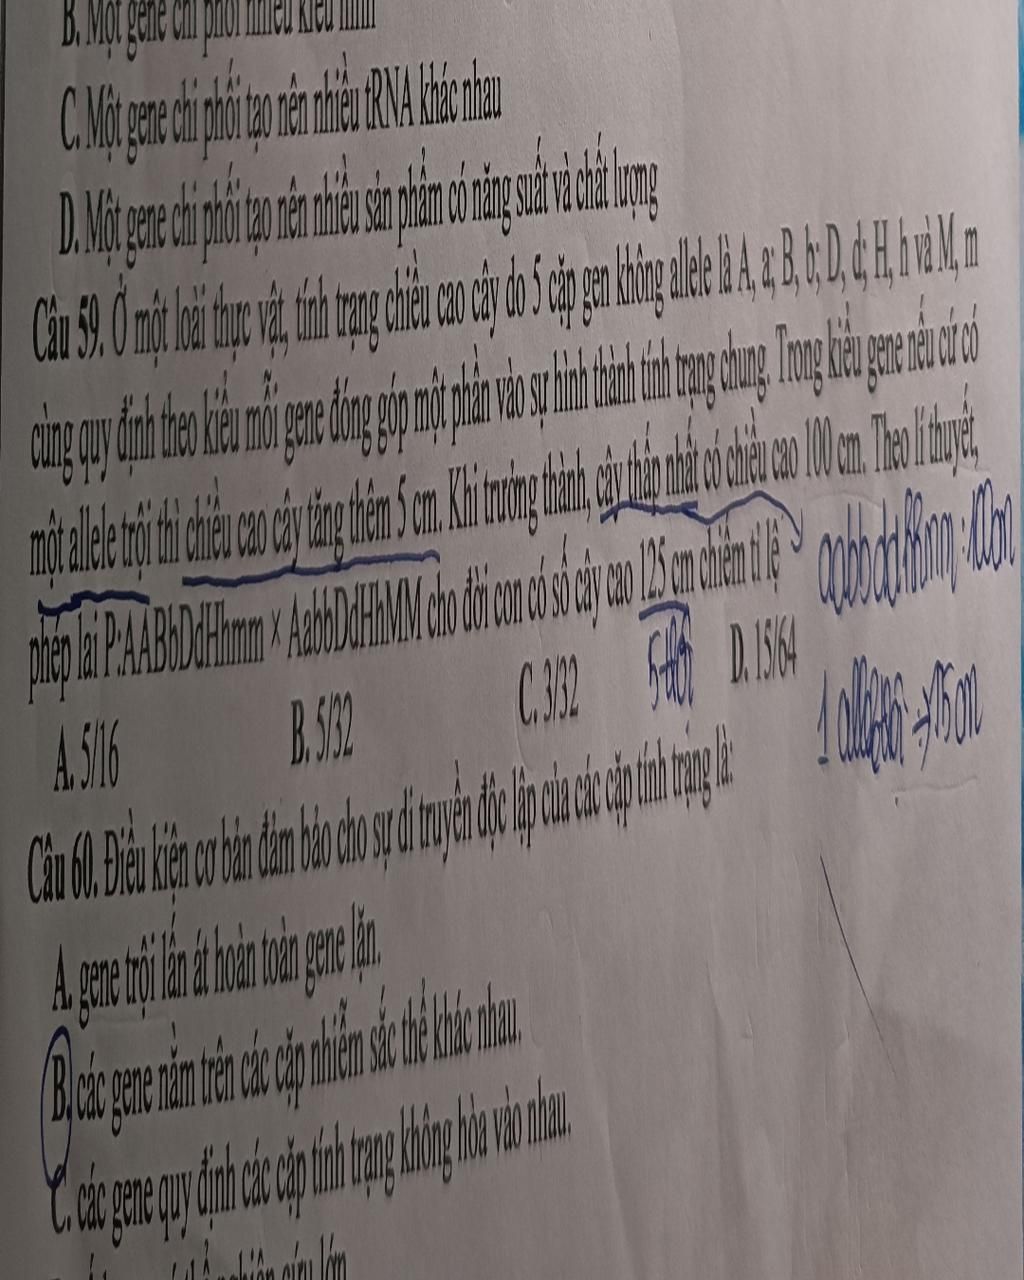 B. Một gene chi phối nhiều kiểu hình
C. Một gene chi phối tạo nên nhiều tRNA khác nhau
D. Một gene chi phối tạo nên nhiều sản phẩm có năng suất và chất lượng
Câu 59. Ở một loài thực vật, tính trạng chiều cao cây do 5 cặp gen không allele là A, a; B, b; D, d; H, h và M, m
cùng quy định theo kiểu mỗi gene đóng góp một phần vào sự hình thành tính trạng chung. Trong kiểu gene nếu cứ có
một allele trội thì chiều cao cây tăng thêm 5 cm. Khi trưởng thành, cây thấp nhất có chiều cao 100 cm. Theo lí thuyết,
phép lai P:AABbDdHhmm × AabbDdHhMM cho đời con có số cây cao 125 cm chiếm tỉ lệ
: 100cm
5 trội
A. 5/16 B. 5/32 C. 3/32 D. 15/64
1
Câu 60. Điều kiện cơ bản đảm bảo cho sự di truyền độc lập của các cặp tính trạng là:
A. gene trội lấn át hoàn toàn gene lặn.
B. các gene nằm trên các cặp nhiễm sắc thể khác nhau.
C. các gene quy định các cặp tính trạng không hòa vào nhau.